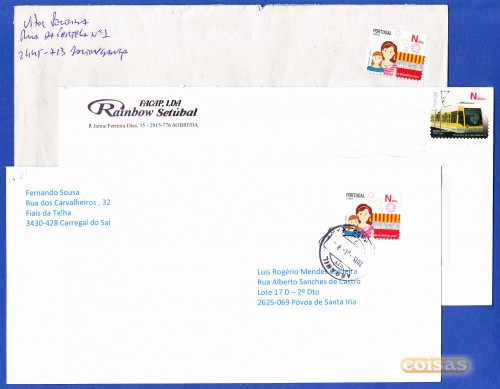 Rua da Portela Nº1
2445-713
PORTUGAL
N
FACAP, LDA
Rainbow Setúbal
R Jaime Ferreira Dias, 15 - 2815-776 SOBREDA
N
Fernando Sousa
Rua dos Carvalheiros , 32
Fiais da Telha
3430-428 Carregal do Sal
PORTUGAL
N
ARGANIL
Luís Rogério Mendes
Rua Alberto Sanches de Castro
Lote 17 D – 2º Dto
2625-069 Póvoa de Santa Iria
coisas